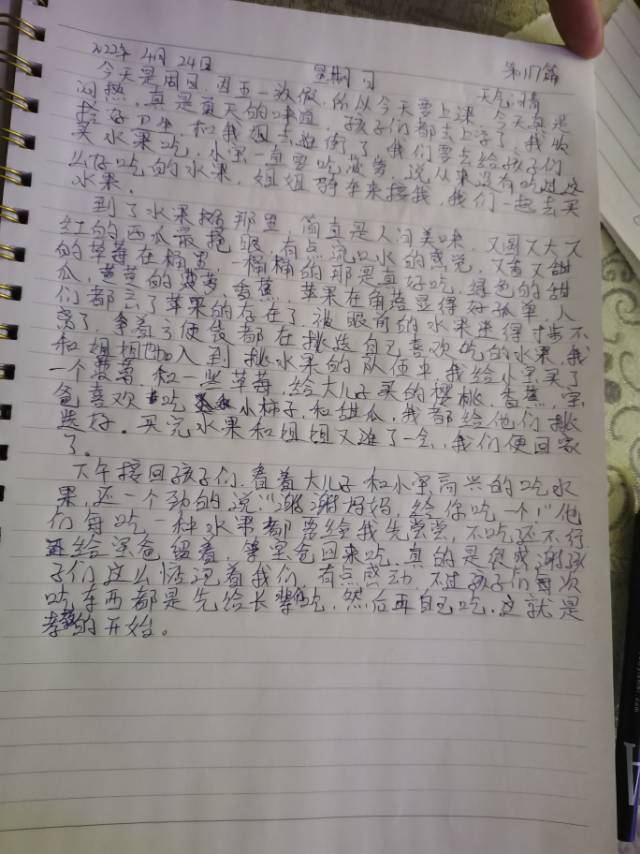 2022年4月24日 星期日 第117篇
天气:晴
今天是周日,因五一放假,所以今天要上课,今天真是
闷热,真是夏天的味道,孩子们都去上学了,我收
拾好卫生,和我姐去逛街了,我们要去给孩子们
买水果吃,小宝一直要吃菠萝,说从来没有吃过这
么好吃的水果,姐姐骑车来接我,我们一起去买
水果。
到了水果摊那里,简直是人间美味,又圆又大又
红的西瓜最抢眼,有点流口水的感觉,又香又甜
的草莓在桶里,一桶桶的那是真好吃,绿色的甜
瓜,黄黄的菠萝,香蕉,苹果在角落显得好孤单,人
们都忘了苹果的存在了,被眼前的水果迷得
和姐姐加入到挑水果的队伍中,我给小宝买了
一个菠萝和一些草莓,给大儿子买的樱桃,香蕉,宝
爸喜欢吃小柿子,和甜瓜,我都给他们挑
选好。买完水果和姐姐又逛了一会,我们便回家
了。
下午接回孩子们,看着大儿子和小宝高兴的吃水
果,还一个劲的说:"谢谢妈妈,给你吃一个!"他
们每吃一种水果都要给我先尝尝,不吃还不行
还给宝爸留着,等宝爸回来吃,真的是很感谢孩
子们这么惦记着我们,有点感动,不过孩子们每次
吃东西都是先给长辈吃,然后再自己吃,这就是
孝的开始。